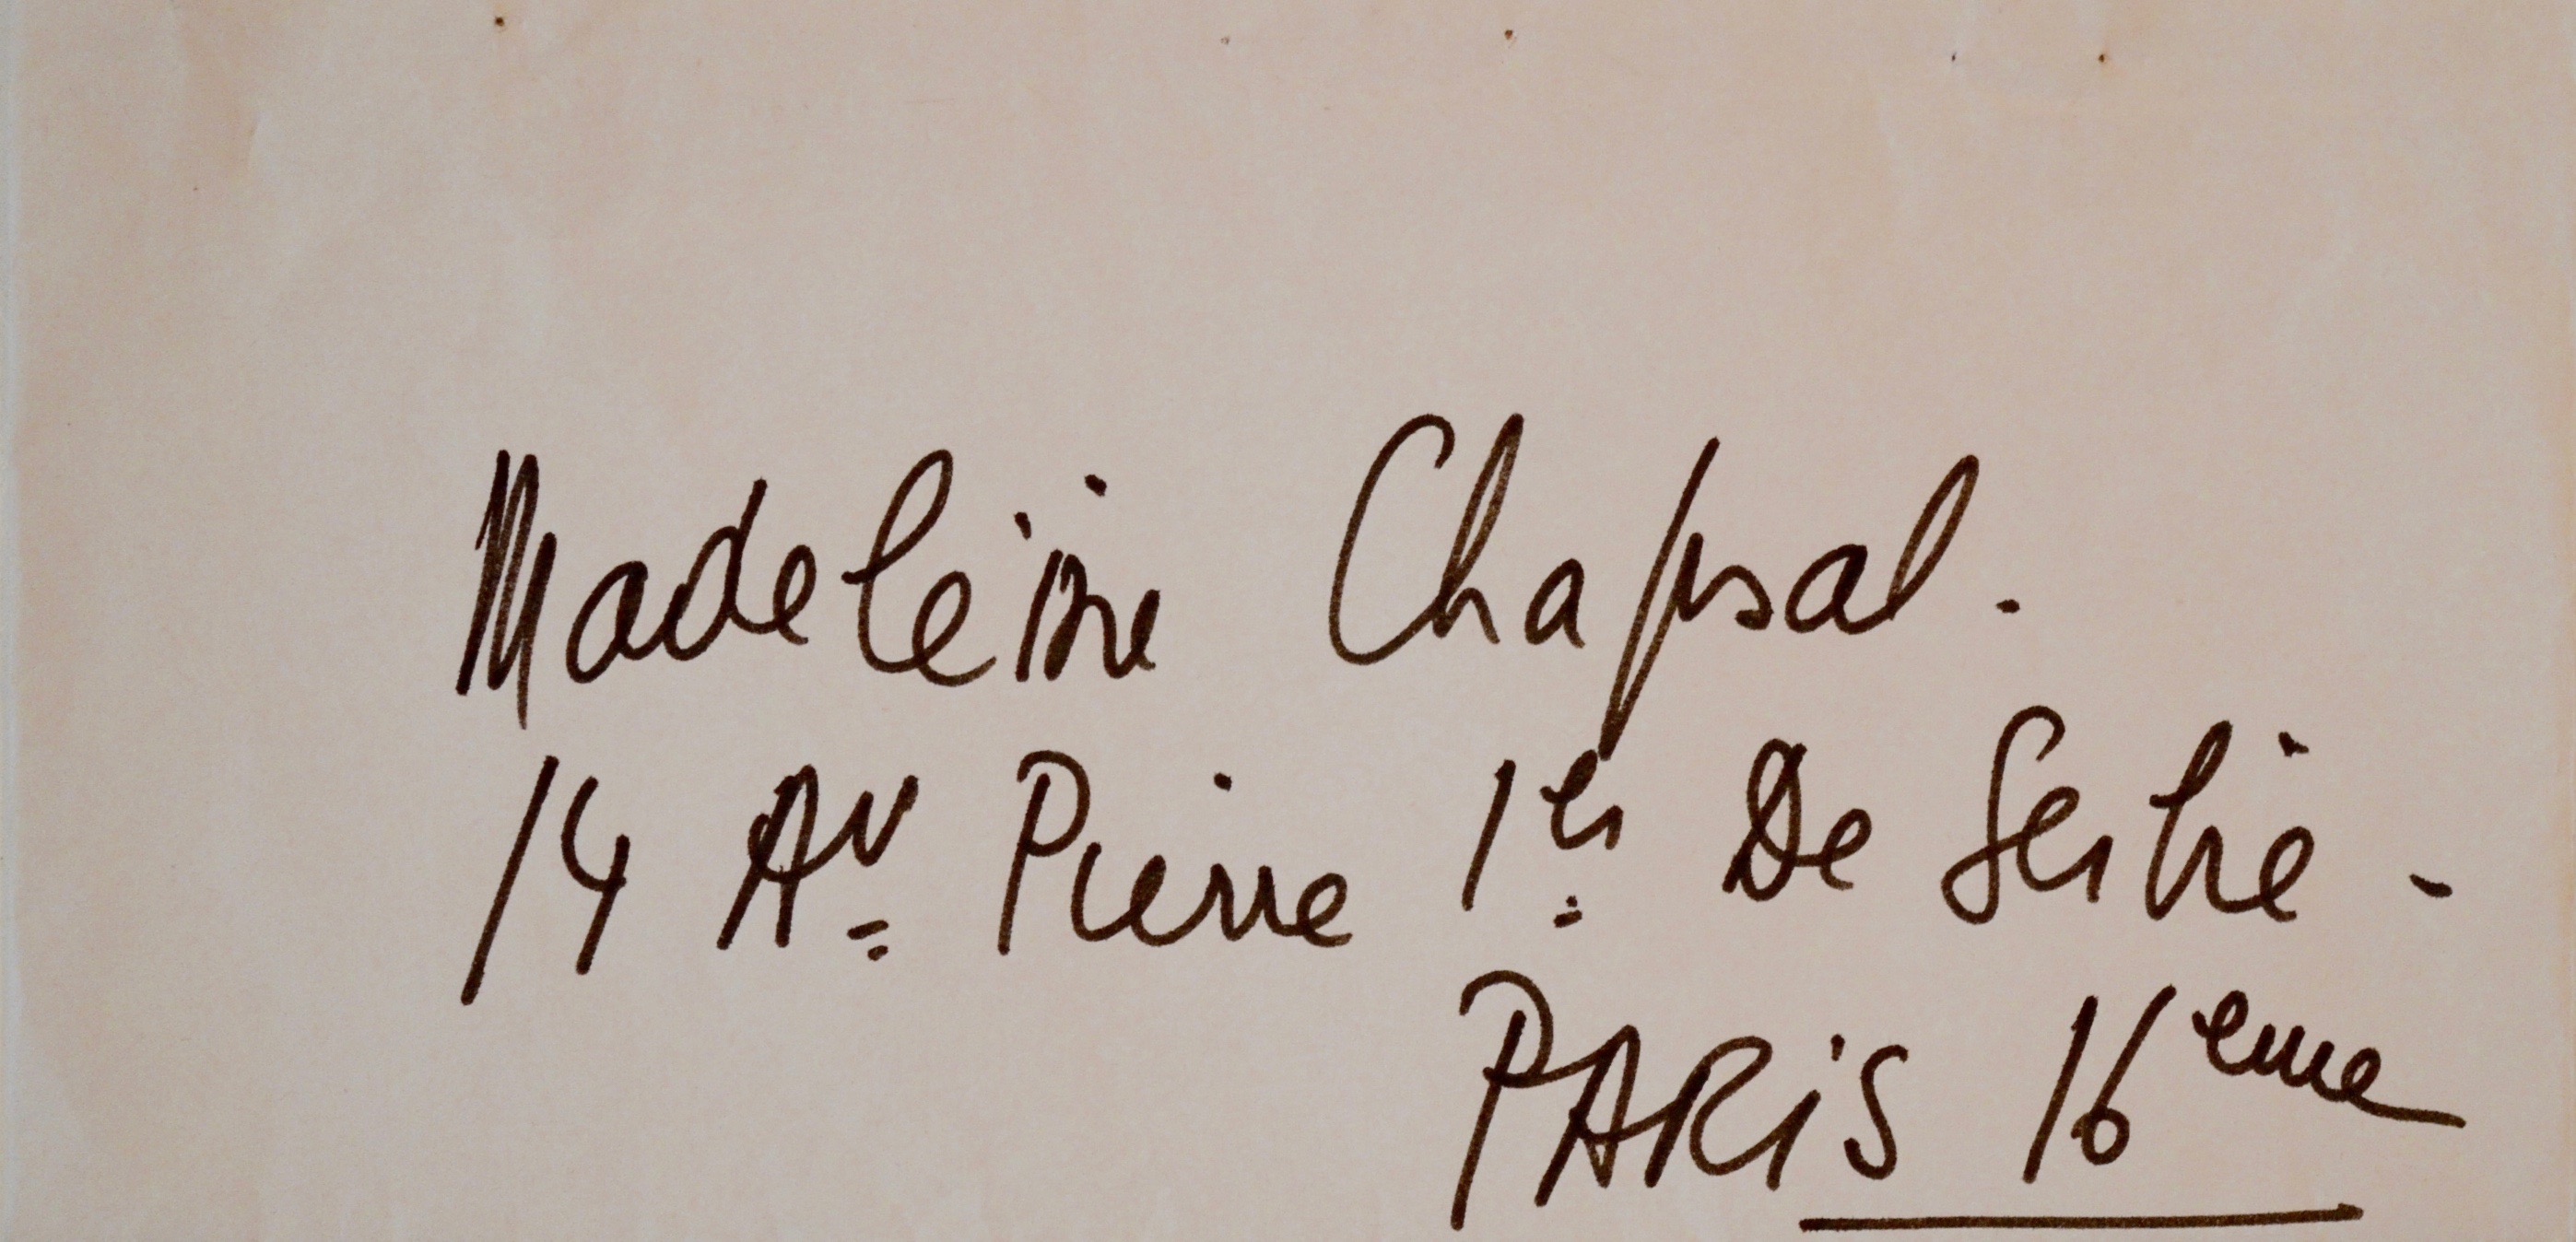 Madeleine Chapsal.
14 Av. Pierre 1er De Serbie -
PARiS 16eme